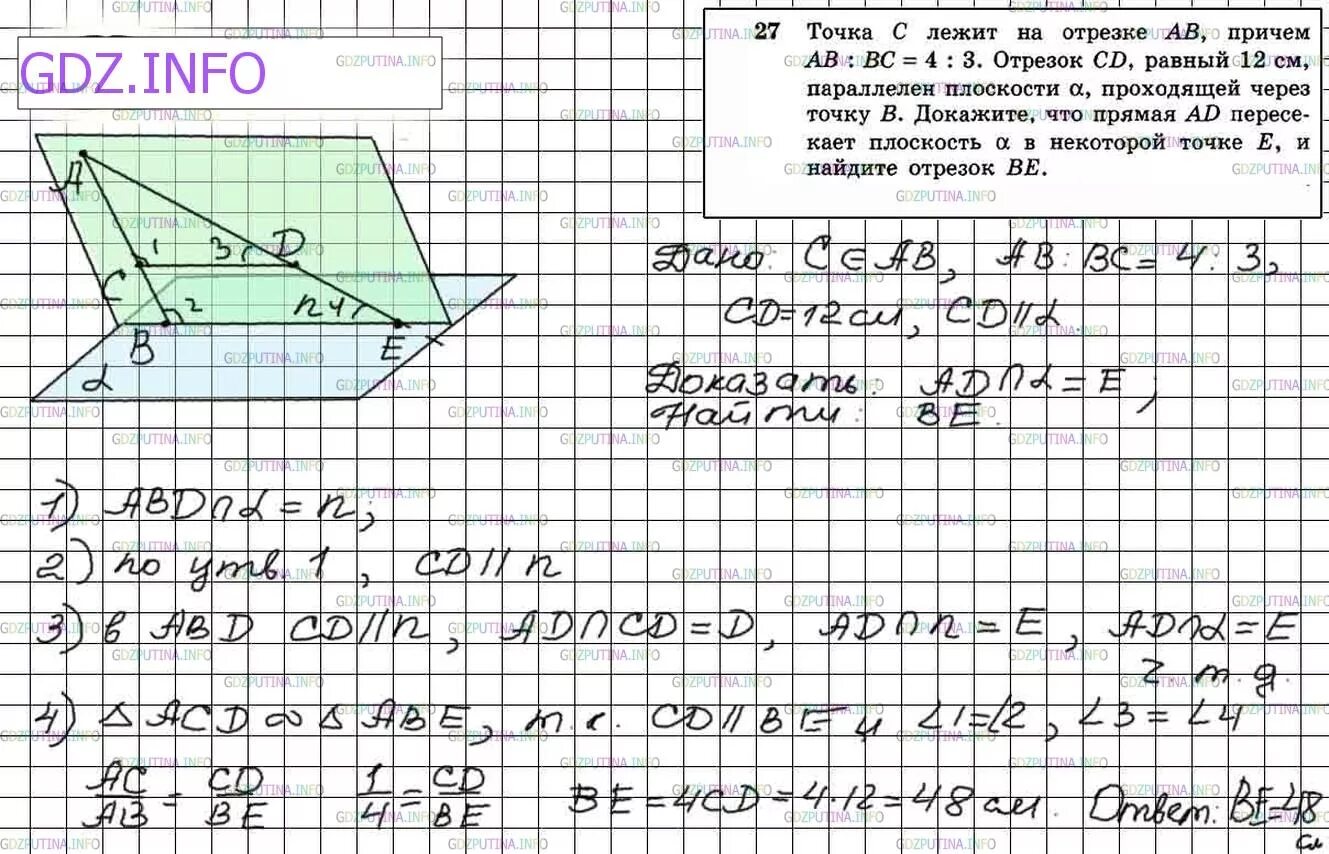 GDZ.INFO
27 Точка C лежит на отрезке AB, причем
AB : BC = 4 : 3. Отрезок CD, равный 12 см,
параллелен плоскости α, проходящей через
точку B. Докажите, что прямая AD пересе-
кает плоскость α в некоторой точке E, и
найдите отрезок BE.
A
C
1
3
D
2
n
4
B
E
α
Дано: C ∈ AB, AB : BC = 4 : 3,
CD = 12 см, CD || α.
Доказать: AD ∩ α = E ;
Найти: BE.
1) ABD ∩ α = n;
2) по утв. 1, CD || n
3) в ABD CD || n, AD ∩ CD = D, AD ∩ n = E, AD ∩ α = E
ч. т. д.
4) Δ ACD ∞ Δ ABE, т. к. CD || BE и ∠1 = ∠2, ∠3 = ∠4
AC/AB = CD/BE 1/4 = CD/BE BE = 4CD = 4·12 = 48 см. Ответ: BE = 48
см
GDZPUTINA.INFO